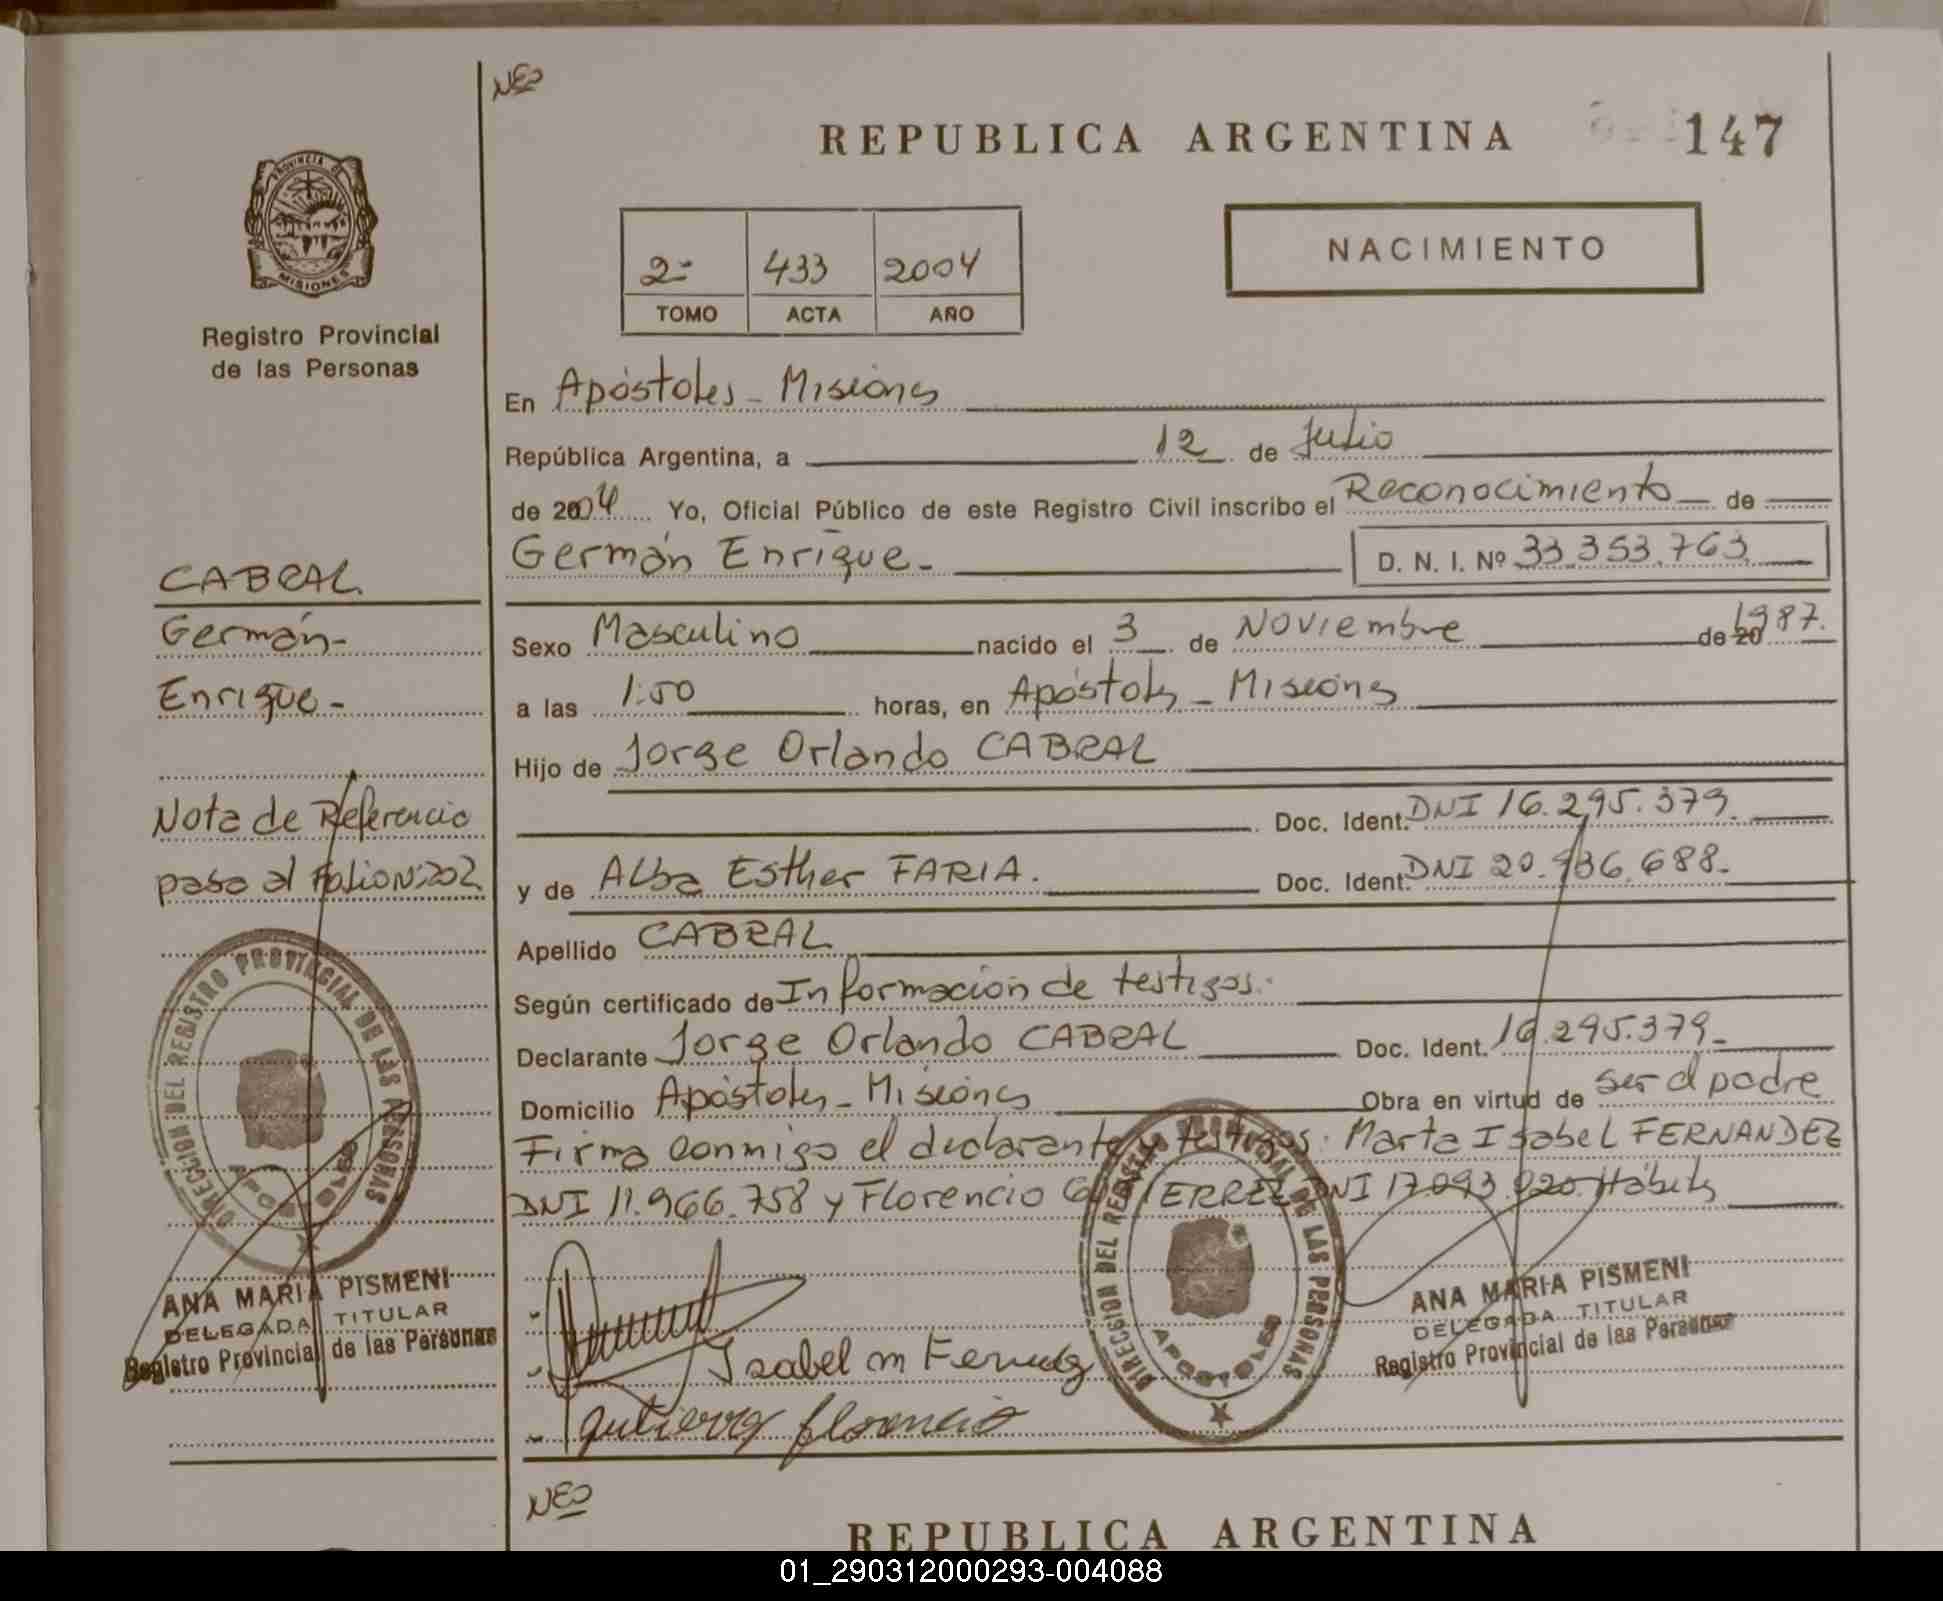 NEO
REPUBLICA ARGENTINA
147
PROVINCIA DE
MISIONES
Registro Provincial
de las Personas
2º 433 2004
TOMO ACTA AÑO
NACIMIENTO
En Apóstoles - Misiones
República Argentina, a 12 de Julio
de 2004 Yo, Oficial Público de este Registro Civil inscribo el Reconocimiento de
Germán Enrique.- D. N. I. Nº 33.353.763
CABRAL
Germán-
Enrique-
Nota de Referencia
pasa al Folio Nº 202
Sexo Masculino nacido el 3 de Noviembre de 20 1987.
a las 1:50 horas, en Apóstoles - Misiones
Hijo de Jorge Orlando CABRAL
Doc. Ident. DNI 16.295.379.
y de Alba Esther FARIA. Doc. Ident. DNI 20.936.688.-
Apellido CABRAL
Según certificado de Información de testigos.
Declarante Jorge Orlando CABRAL Doc. Ident. 16.295.379.-
Domicilio Apóstoles - Misiones Obra en virtud de ser el padre
Firma conmigo el declarante y testigos: Marta Isabel FERNANDEZ
DNI 11.966.758 y Florencio GUTIERREZ DNI 17.093.020. Hábiles
DIRECCION DEL REGISTRO PROVINCIAL DE LAS PERSONAS
APOSTOLES
ANA MARIA PISMENI
DELEGADA TITULAR
Registro Provincial de las Personas
DIRECCION DEL REGISTRO PROVINCIAL DE LAS PERSONAS
APOSTOLES
ANA MARIA PISMENI
DELEGADA TITULAR
Registro Provincial de las Personas
Isabel m
Gutierrez florencio
NEO
REPUBLICA ARGENTINA
01_290312000293-004088